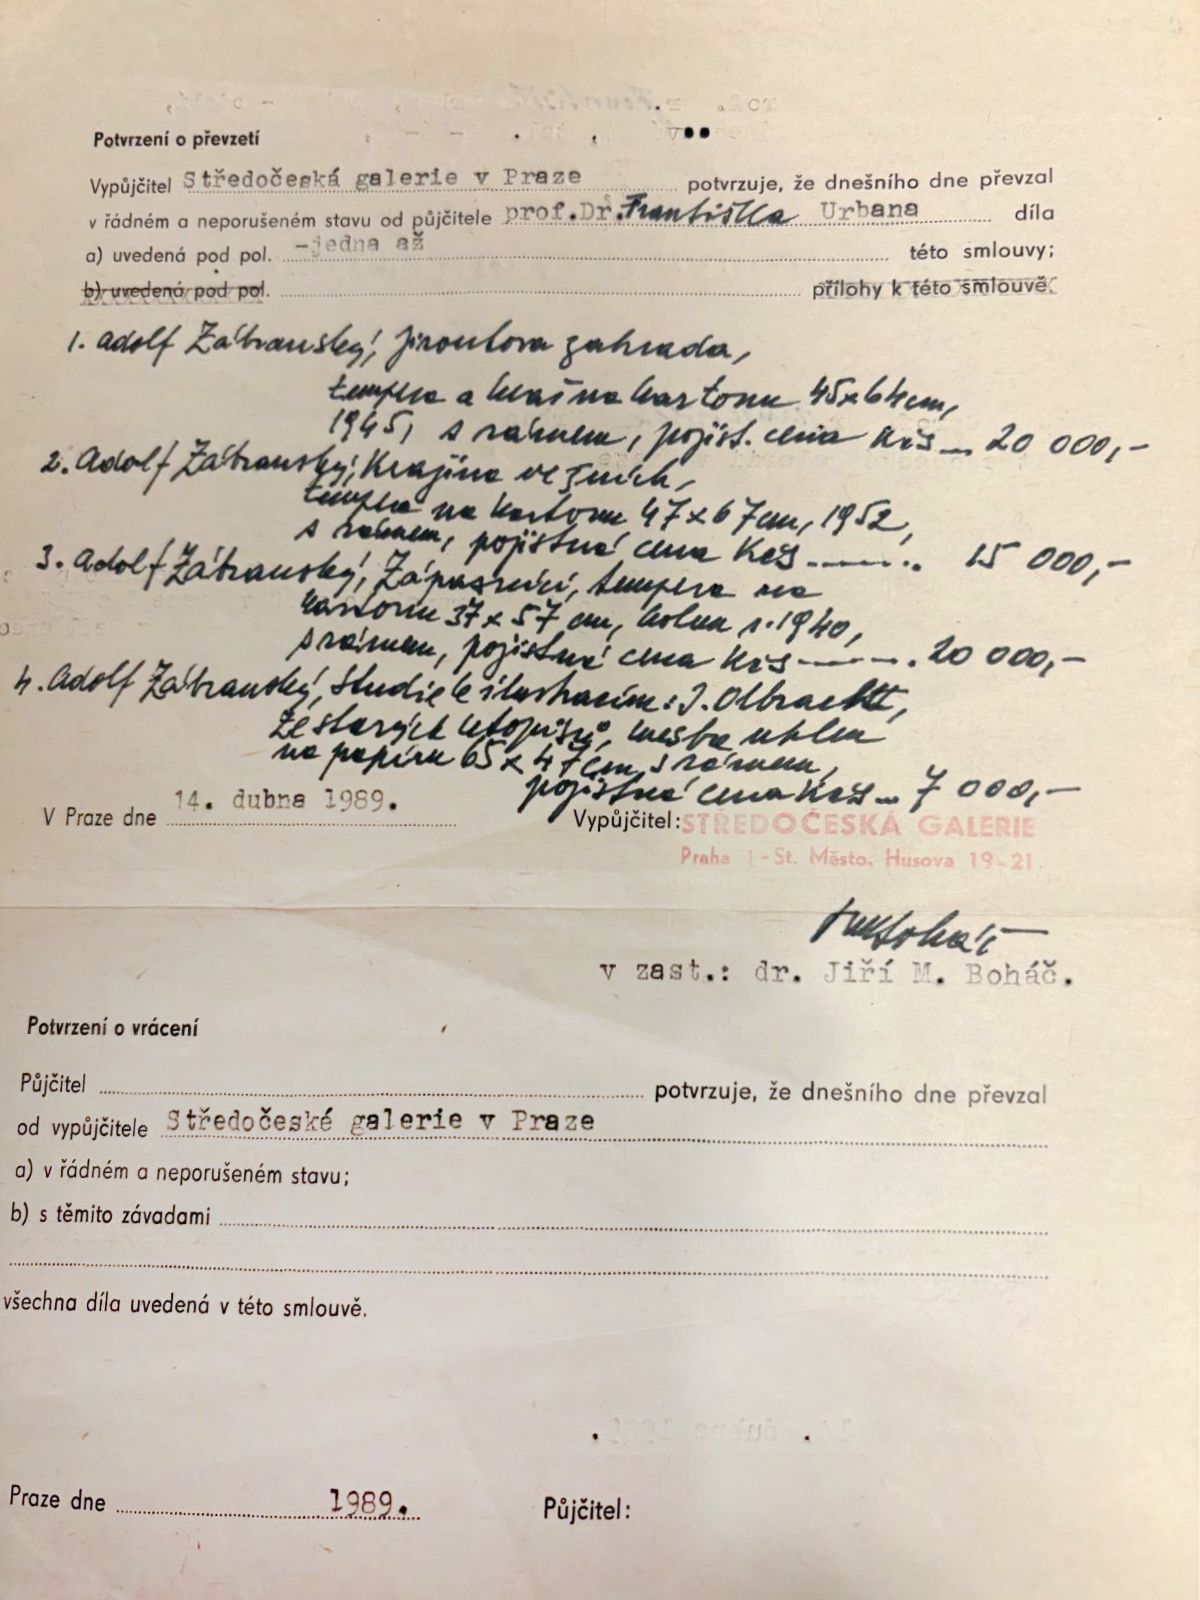 Potvrzení o převzetí
Vypůjčitel Středočeská galerie v Praze potvrzuje, že dnešního dne převzal
v řádném a neporušeném stavu od půjčitele prof.Dr.Františka Urbana díla
a) uvedená pod pol. -jedna až této smlouvy;
b) uvedená pod pol. přílohy k této smlouvě.
1. Adolf Zábranský, Jiroutova zahrada,
tempera a kvaš na kartonu 45x64cm,
1945, s rámem, pojist. cena Kčs 20 000,-
2. Adolf Zábranský, Krajina ve žních,
tempera na kartonu 47x67cm, 1952,
s rámem, pojistná cena Kčs 15 000,-
3. Adolf Zábranský, Zápasníci, tempera na
kartonu 37x57 cm, kolem r. 1940,
s rámem, pojistná cena Kčs 20 000,-
4. Adolf Zábranský, Studie k ilustracím: I. Olbracht,
Ze starých letopisů, kresba uhlem
na papíru 65x47cm, s rámem,
pojistná cena Kčs 7 000,-
V Praze dne 14. dubna 1989.
Vypůjčitel: STŘEDOČESKÁ GALERIE
Praha 1 - St. Město, Husova 19-21
v zast.: dr. Jiří M. Boháč.
Potvrzení o vrácení
Půjčitel potvrzuje, že dnešního dne převzal
od vypůjčitele Středočeské galerie v Praze
a) v řádném a neporušeném stavu;
b) s těmito závadami
všechna díla uvedená v této smlouvě.
Praze dne 1989.
Půjčitel: